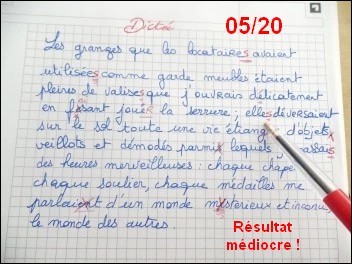 Dictée
05/20
Les granges que les locataires avaient
utilisées comme garde meubles étaient
pleines de valises que j'ouvrais délicatement
en faisant jouer la serrure ; elles déversaient
sur le sol toute une vie étrange d'objets
veillots et démodés parmis lesquels passais
des heures merveilleuses : chaque chape
chaque soulier, chaque médailles me
parlaient d'un monde mystérieux et inconu,
le monde des autres.
Résultat
médiocre !